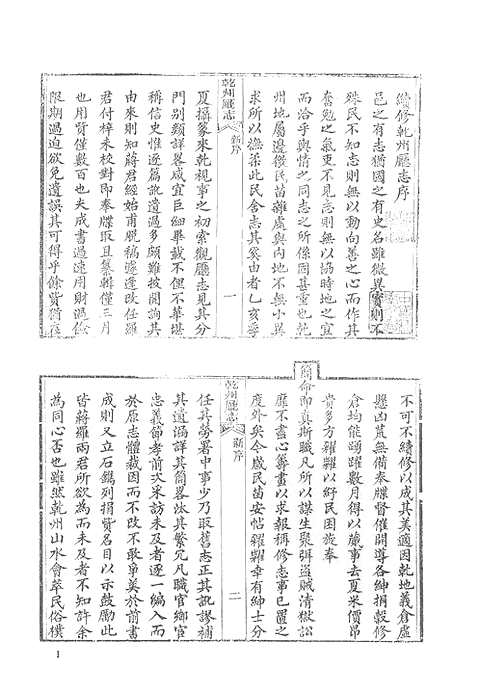 續修乾州廳志序
邑之有志猶國之有史名雖微異實則不
殊民不知志則無以動向善之心而作其
奮勉之氣吏不見志則無以協時地之宜
而洽乎輿情之同志之所係固甚重也乾
州地屬邊徼民苗雜處與內地不無小異
求所以漁柔此民舍志其奚由者乙亥季
乾州廳志
新序
一
夏攝篆來乾視事之初索觀廳志見其分
門別類詳畧咸宜巨細畢載不但不華堪
稱信史惟逐篇訛遺過多頗難披閱詢其
由來則知蔣君經始甫脫稿遽逢改任羅
君付梓未校對即奉牒取且纂輯僅三月
也用賢僅數百也夫成書過速用財過儉
限期過迫欲免遺誤其可得乎餘貲猶在
不可不續修以成其美適因乾地義倉虛
懸凶荒無備奉牒督催開導各紳捐穀修
倉均能踴躍數月得以蕆事去夏米價昂
貴多方糴糶以紓民困旋奉
簡命即真斯職凡所以謀生聚弭盜賊清獄訟
靡不盡心籌畫以求報稱修志事已置之
度外矣今歲民苗安帖糴糶幸有紳士分
乾州廳志
新序
二
任其勞署中事少乃取舊志正其訛謬補
其遺漏詳其簡畧汰其繁冗凡職官鄉宦
忠義節孝前次采訪未及者逐一編入而
於原志體裁因而不改不敢爭美於前書
成則又立石鐫列捐貲名目以示鼓勵此
皆蔣羅兩君所欲為而未及者不知許余
為同心否也雖然乾州山水會萃民俗樸
1